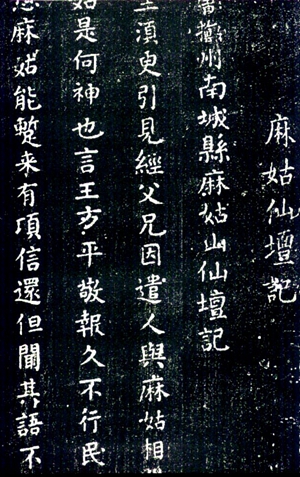 麻姑仙壇記
撫州南城縣麻姑山仙壇記
須臾引見經父兄因遣人與麻姑相
姑是何神也言王方平敬報久不行民
麻姑能蹔来有頃信還但聞其語不